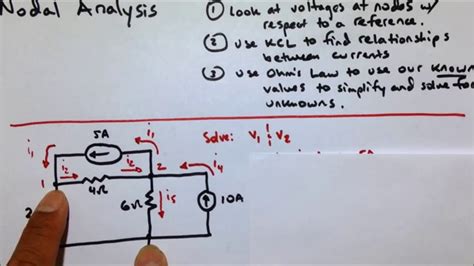 Nodal Analysis
① Look at voltages at nodes w/
respect to a reference.
② use KCL to find relationships
between currents
③ use Ohm's Law to use our known
values to simplify and solve for
unknowns.
Solve: V₁ & V₂
5A
i₁
i₁
1
i₂
4Ω
i₂
2
i₄
6Ω
i₅
10A
2